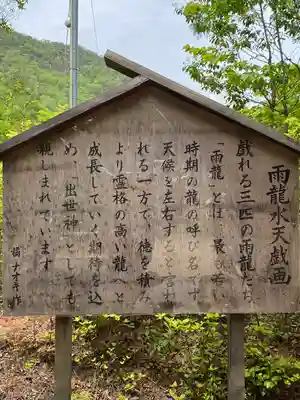 雨龍水天戯画
戯れる三匹の雨龍たち
「雨龍」とは、最も若い
時期の龍の呼び名です
天候を左右すると言わ
れる一方で、徳を積み
より霊格の高い龍へと
成長していく期待を込
め、「出世神」としても
親しまれています